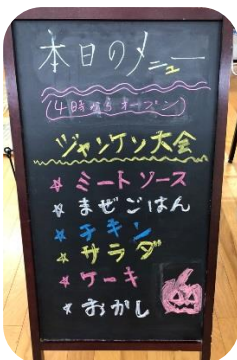 本日のメニュー
(4時からオープン)
ジャンケン大会
☆ミートソース
☆まぜごはん
☆チキン
☆サラダ
☆ケーキ
☆おかし